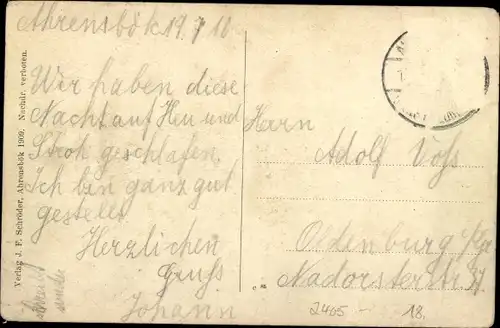 Ahrensbök 19.7.10
Wir haben diese
Nacht auf Heu und
Stroh geschlafen.
Ich bin ganz gut
gestellt
Herzlichen
Gruss
Johann
Verlag J. F. Schröder, Ahrensbök 1909. Nachdr. verboten.
Herrn
Adolf Voss
Oldenburg i/Gr
Nadorster Str. 37
2405 - 18.